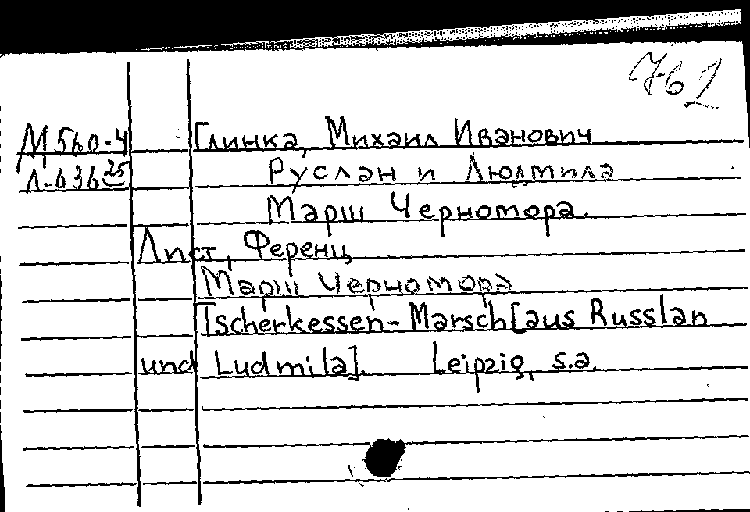 761
М560-4 Глинка, Михаил Иванович
Л-636 25 Руслан и Людмила
Марш Черномора.
Лист, Ференц
Марш Черномора
Tscherkessen-Marsch [aus Russlan
und Ludmila]. Leipzig, s.a.